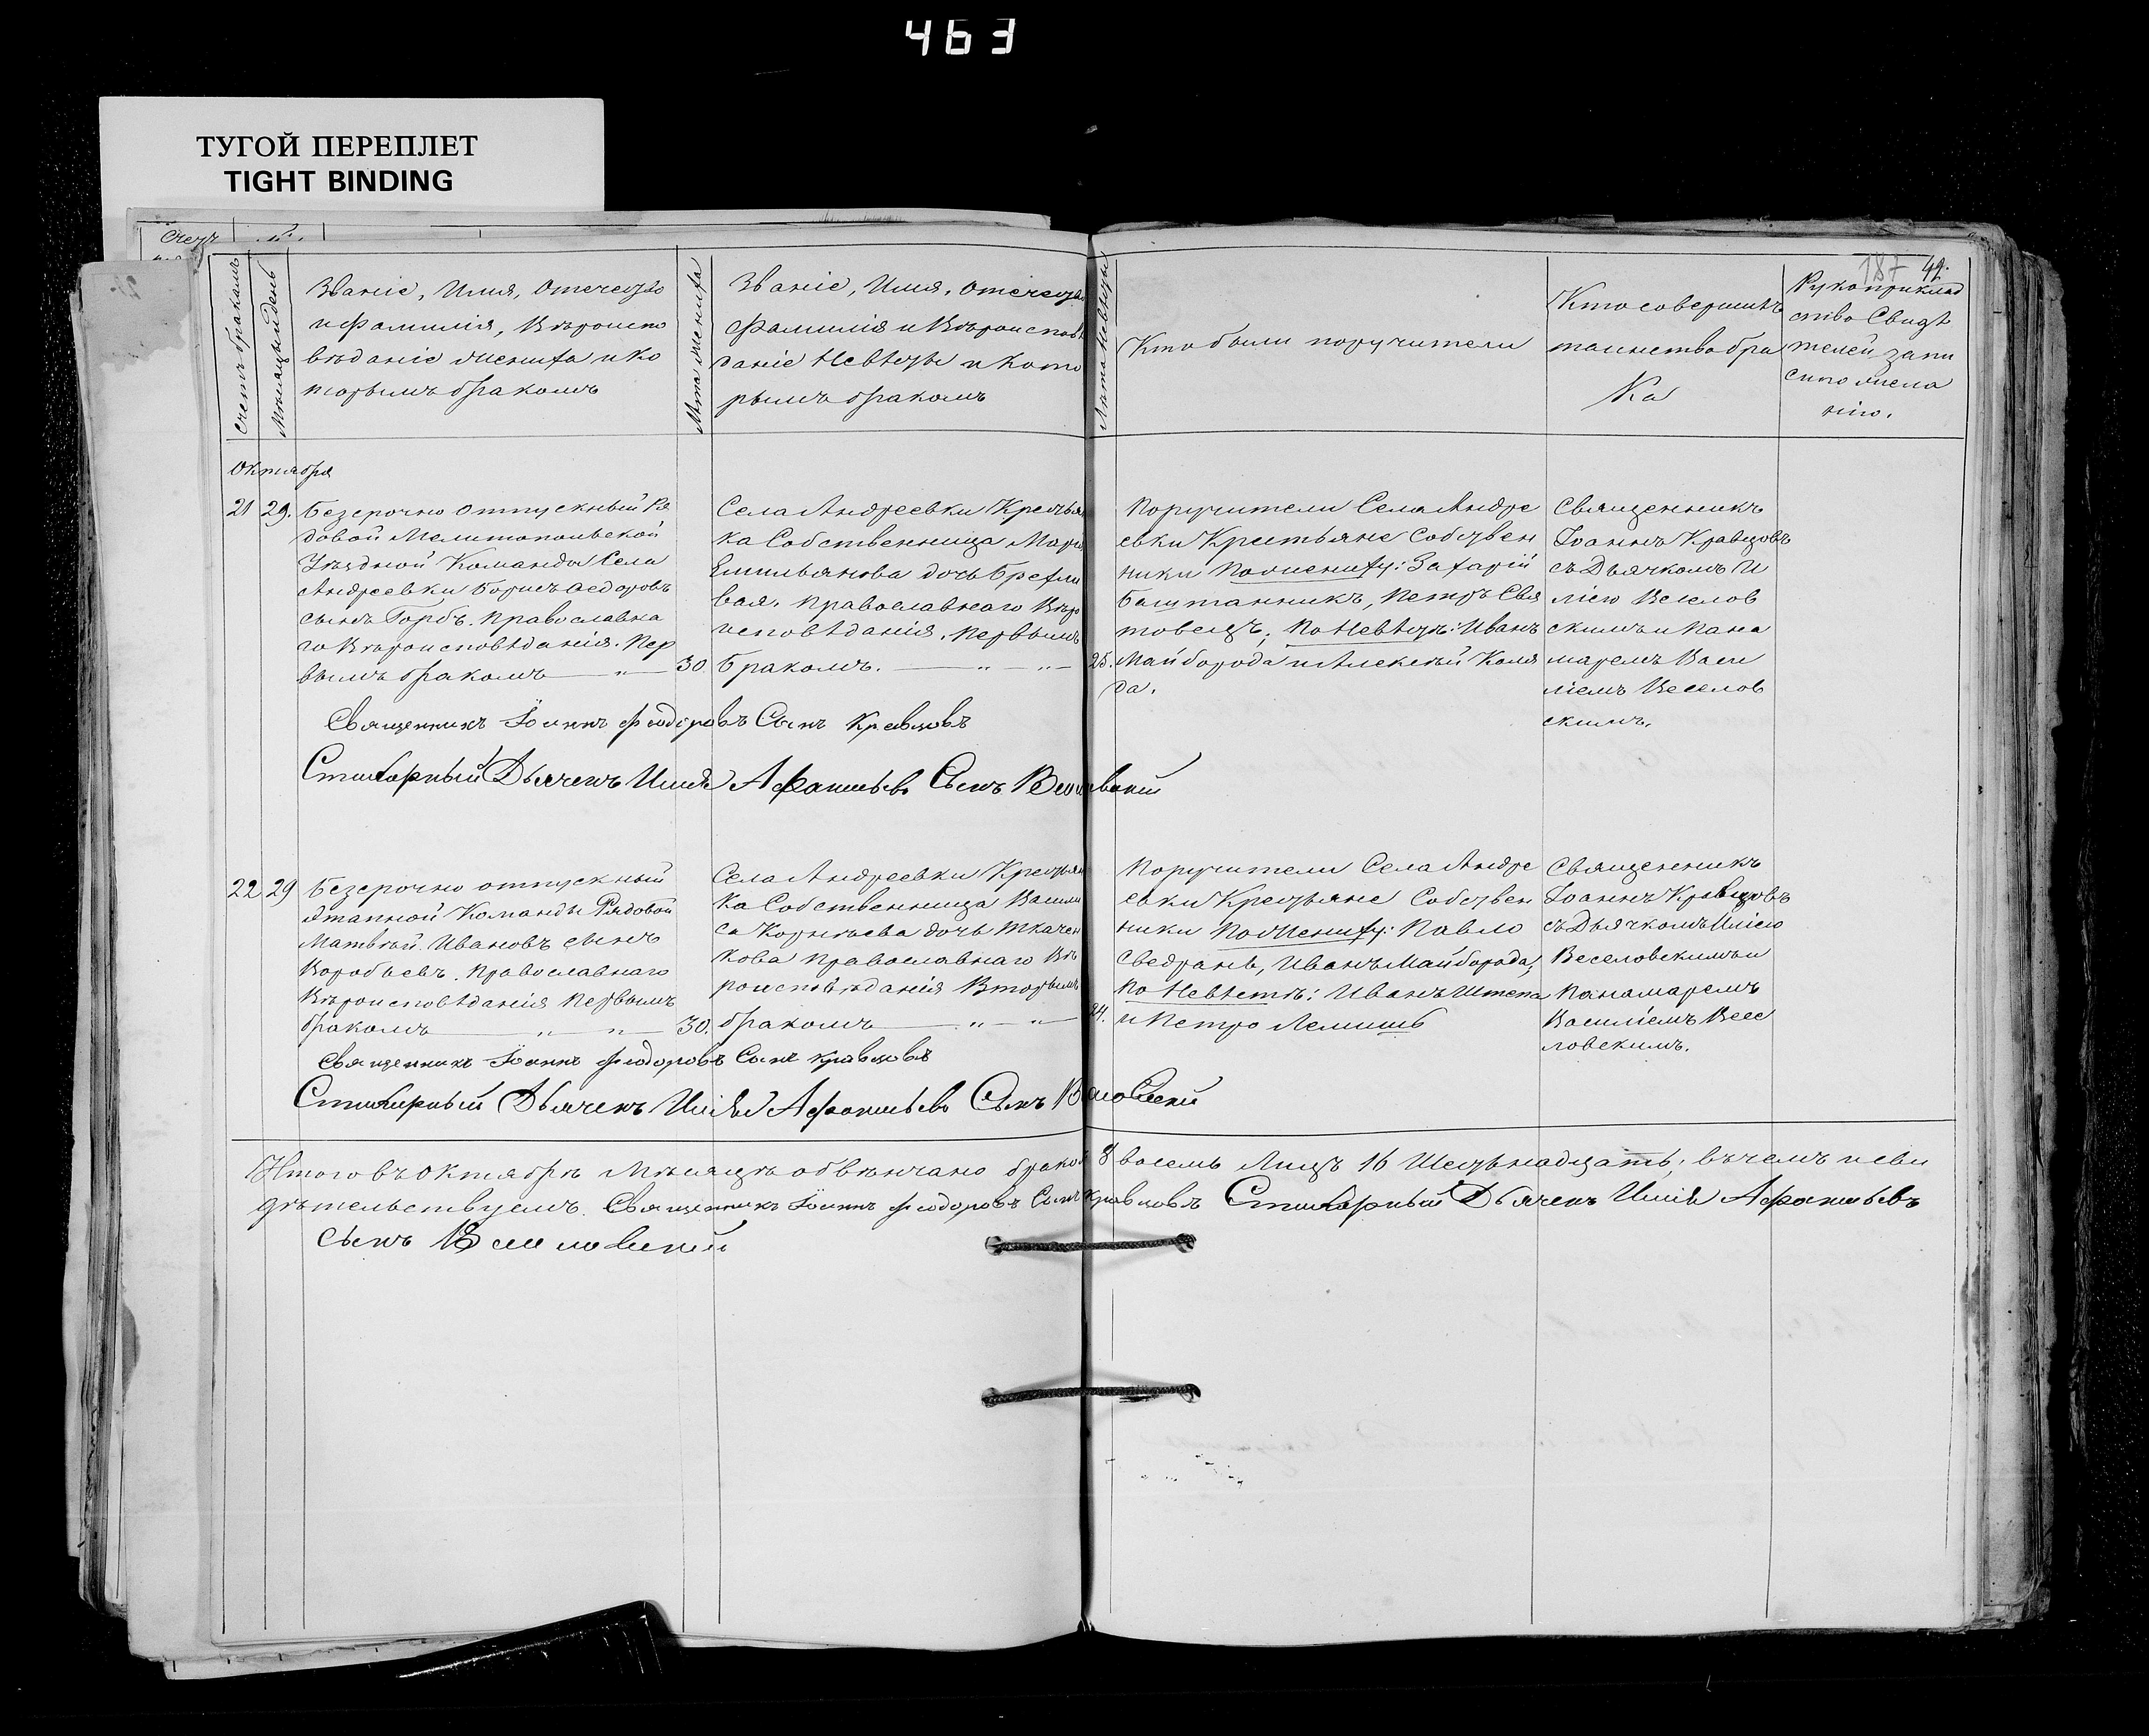 463
ТУГОЙ ПЕРЕПЛЕТ
TIGHT BINDING
Счетъ
187 42.
Счетъ бракамъ
Мѣсяцъ и день
Званіе, Имя, Отечество
и фамилія, Вѣроиспо
вѣданіе жениха и ко
торымъ бракомъ
Лѣта жениха
Званіе, Имя, Отечество
фамилія и Вѣроисповѣ
даніе Невѣсты и кото
рымъ бракомъ
Лѣта Невѣсты
Кто были поручители
Кто совершилъ
таинство бра
ка
Рукоприклад
ство Свидѣ
телей записи
по жела
нію.
Октября
21 29.
Безсрочно отпускный Ря
довой Мелитопольской
Уѣздной Команды Села
Андреевки Борисъ Ѳедоровъ
сынъ Горбъ. Православна
го Вѣроисповѣданія. Пер
вымъ бракомъ — „ — 30.
Села Андреевки Крестьян
ка Собственница Марѳа
Емильянова дочь Брехли
вая. Православнаго Вѣро
исповѣданія. Первымъ
Бракомъ. — „ — „ — 25.
Поручители Села Андре
евки Крестьяне Собствен
ники По жениху: Захарій
Баштанникъ, Петръ Свя
товецъ, По Невѣстѣ: Иванъ
Майборода и Алексѣй Коля
да.
Священникъ
Іоаннъ Кравцовъ
съ Дьячкомъ И
ліею Веселов
скимъ и Пана
маремъ Васи
ліемъ Веселов
скимъ.
Священникъ Іоаннъ Феодоровъ Сынъ Кравцовъ
Стихарный Дьячекъ Илія Афанасьевъ Сынъ Веселовскій
22 29
Безсрочно отпускный
Этапной Команды Рядовой
Матвѣй Ивановъ сынъ
Воробьевъ. Православнаго
Вѣроисповѣданія Первымъ
бракомъ — „ — „ — 30.
Села Андреевки Крестьян
ка Собственница Васили
са Корнѣева дочь Ткачен
кова Православнаго Вѣ
роисповѣданія Вторымъ
бракомъ — „ — „ — 24.
Поручители Села Андре
евки Крестьяне Собствен
ники По Жениху: Павло
Иванъ Майборода;
По Невѣстѣ: Иванъ Штепа
и Петро Лемишь
Священникъ
Іоаннъ Кравцовъ
съ Дьячкомъ Иліею
Веселовскимъ и
Панамаремъ
Василіемъ Весе
ловскимъ.
Священникъ Іоаннъ Феодоровъ Сынъ Кравцовъ
Стихарный Дьячекъ Илія Афанасьевъ Сынъ Веселовскій
Итого въ Октябрѣ Мѣсяцѣ обвѣнчано браков 8 восемь Лицъ 16 Шестьнадцать; въ чемъ и сви
дѣтельствуемъ. Священникъ Іоаннъ Феодоровъ Сынъ Кравцовъ Стихарный Дьячекъ Илія Афанасьевъ
Сынъ Веселовскій